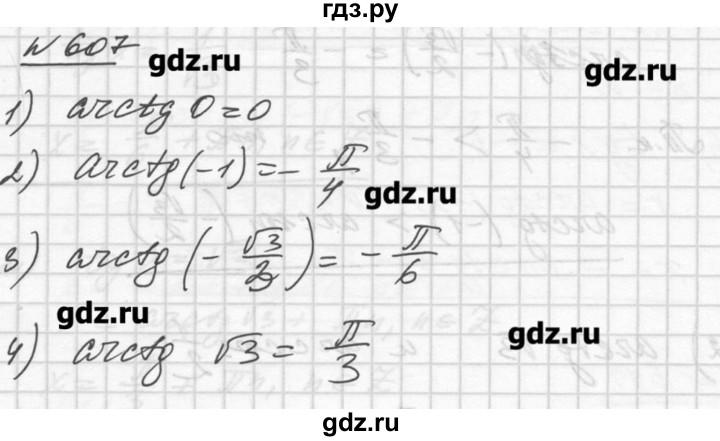 гдз.ру
№ 607
gdz.ru
gdz.ru
1) arctg 0 = 0
2) arctg(-1) = - π/4
gdz.ru
3) arctg (- √3/3) = - π/6
gdz.ru
gdz.ru
4) arctg √3 = π/3
gdz.ru